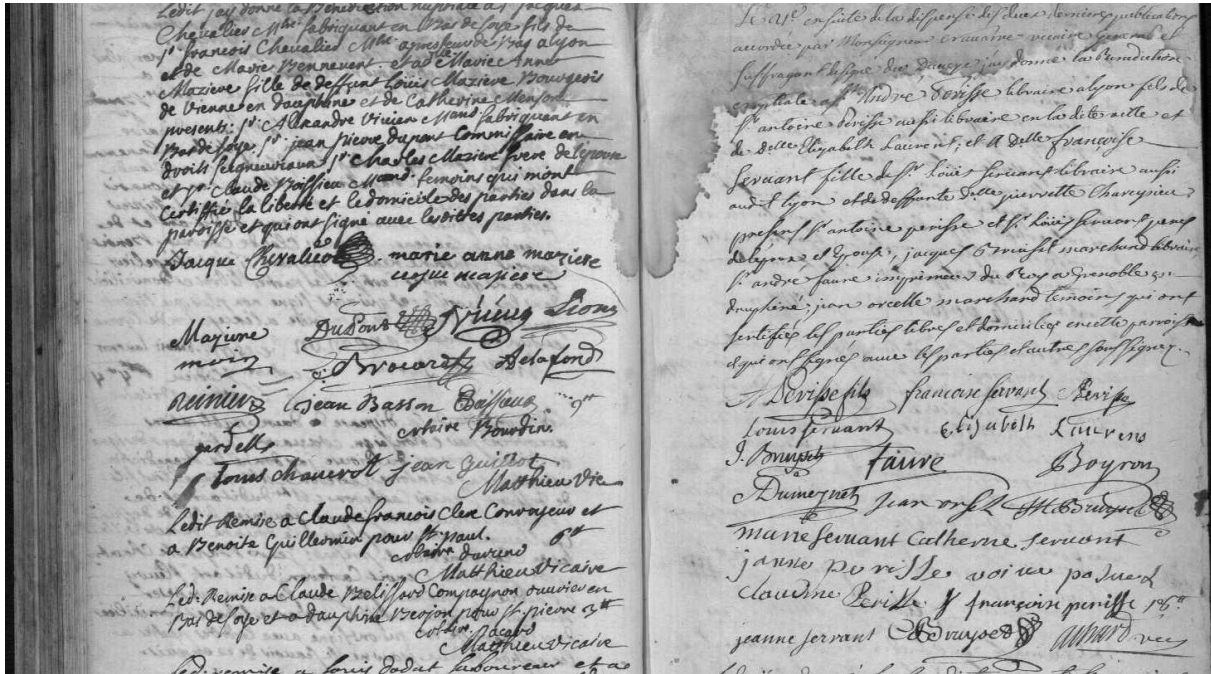 Ledit jay donné la Benediction nuptiale a Sr jacques
Chevalier Md fabriquant en Bas de soye fils de
Sr francois Chevalier Md de Bas a lyon
et de Marie Bennevent. et a dlle Marie Anne
Maziere fille de deffunt Louis Maziere Bourgeois
de Vienne en dauphiné et de Catherine
presents: Sr Alexandre Vivien Mand fabriquant en
Bas de soye, Sr jean pierre dupont Commissaire en
droits seigneuriaux Sr Charles Maziere frere de lepouse
et Sr Claude Boissieu Mand. temoins qui mont
Certiffié la liberté et le domicile des parties dans la
paroisse et qui ont signé avec lesdittes parties.
Jacque Chevalier marie anne maziere
maziere
Maziere DuPont Vivien
Brocard Delafond
jean Basson Boissieux
Bourdin
Chaverot jean Guillot
Matthieu Vic
Ledit Remise a Claude francois Clex Convoyeur et
a Benoite Guillermin pour St paul.
Matthieu Vicaire
Ledit Remise a Claude Belissard Compagnon ouvrier en
Bas de soye et a dauphine Berjon pour St pierre
Matthieu Vicaire
Ledit remise a louis dodat laboureur et a
Le 21e ensuite de la dispense des deux dernieres publications
accordée par Monseigneur vicaire General et
suffragant designé du Diocese jay donné la Benediction
nuptiale a Sr André Perisse libraire a lyon fils de
Sr antoine Perisse aussi libraire en la dite ville et
de delle Elizabeth Laurent; et a Delle françoise
Servant fille de Sr louis servant libraire aussi
aud. lyon et de deffunte delle pierrette
presens Sr antoine perisse et Sr louis servant peres
de lepoux et Epouse, jacques Bruiset marchand libraire
Sr andré faure imprimeur du Roy a Grenoble en
dauphiné, jean orcelle marchand temoins qui ont
certifiés les parties libres et domiciliés en cette paroisse
et qui ont signés avec les parties et autres soussignez.
A Perisse fils francoise servant Perisse
Louis Servant Elisabeth Laurens
J. Bruyset faure Boyron
Dumeynet jean orsel Bruyset
marie servant Catherine servant
janne perisse
Claudine Perisse françoise perisse
jeanne servant Bruyset